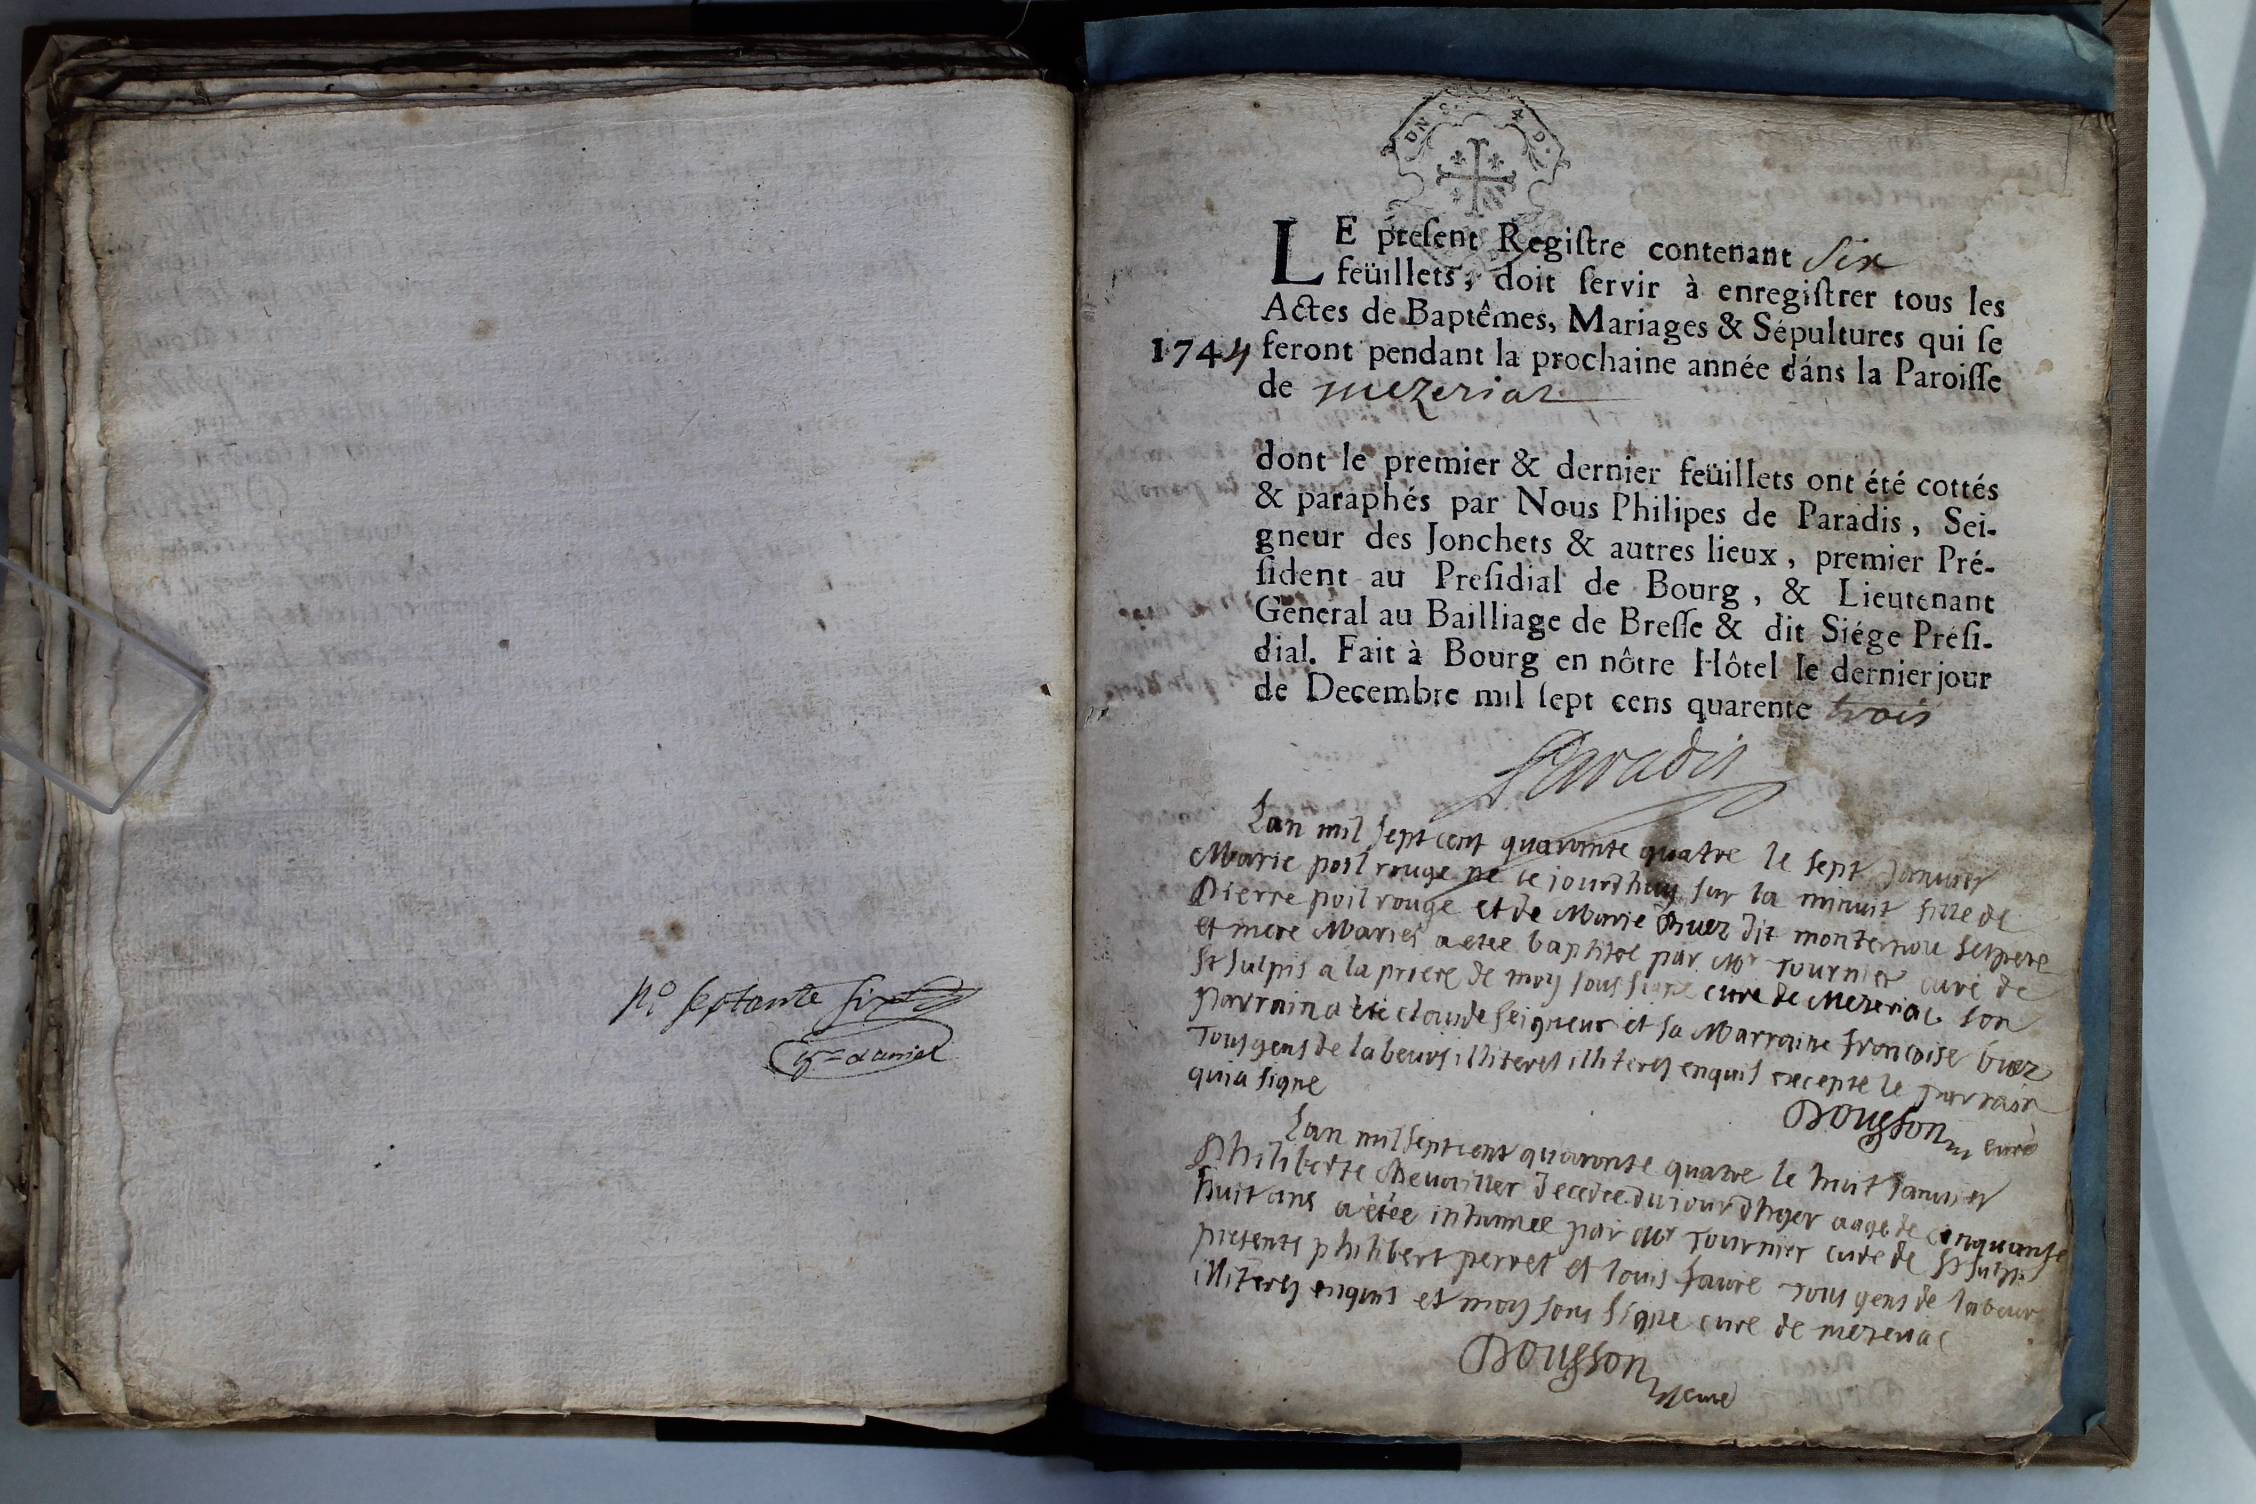 No septante six
DN S. 4 D.
LE preſent Regiſtre contenant six
feüillets, doit ſervir à enregiſtrer tous les
Actes de Baptêmes, Mariages & Sépultures qui ſe
1744 feront pendant la prochaine année dáns la Paroiſſe
de mezeriat
dont le premier & dernier feüillets ont été cottés
& paraphés par Nous Philipes de Paradis, Sei-
gneur des Jonchets & autres lieux, premier Pré-
ſident au Preſidial de Bourg, & Lieutenant
General au Bailliage de Breſſe & dit Siége Préſi-
dial. Fait à Bourg en nôtre Hôtel le dernier jour
de Decembre mil ſept cens quarente trois
Paradis
Lan mil sept cent quarante quatre le sept Janvier
Marie poil rouge né ce jourdhuy sur la minuit fille de
Pierre poil rouge et de Marie buez dit monternou ses pere
et mere Maries a etee baptisee par Mr Tournier curé de
St sulpis a la priere de moy sous signe cure de Mezeriac son
parrain a été claude seigneur et sa Marraine francoise buez
Tous gens de labeurs illiteres enquis excepte le parrain
qui a signe
Dousson curé
Lan mil sept cent quarante quatre le huit Janvier
philiberte chevaillier decedee du jourdhyer aage de cinquante
huit ans a étée inhumee par Mr Tournier cure de St sulpis
presents philibert perret et louis faure Tous gens de labeur
illiteres enquis et moy sous signe cure de mezeriac
Dousson cure